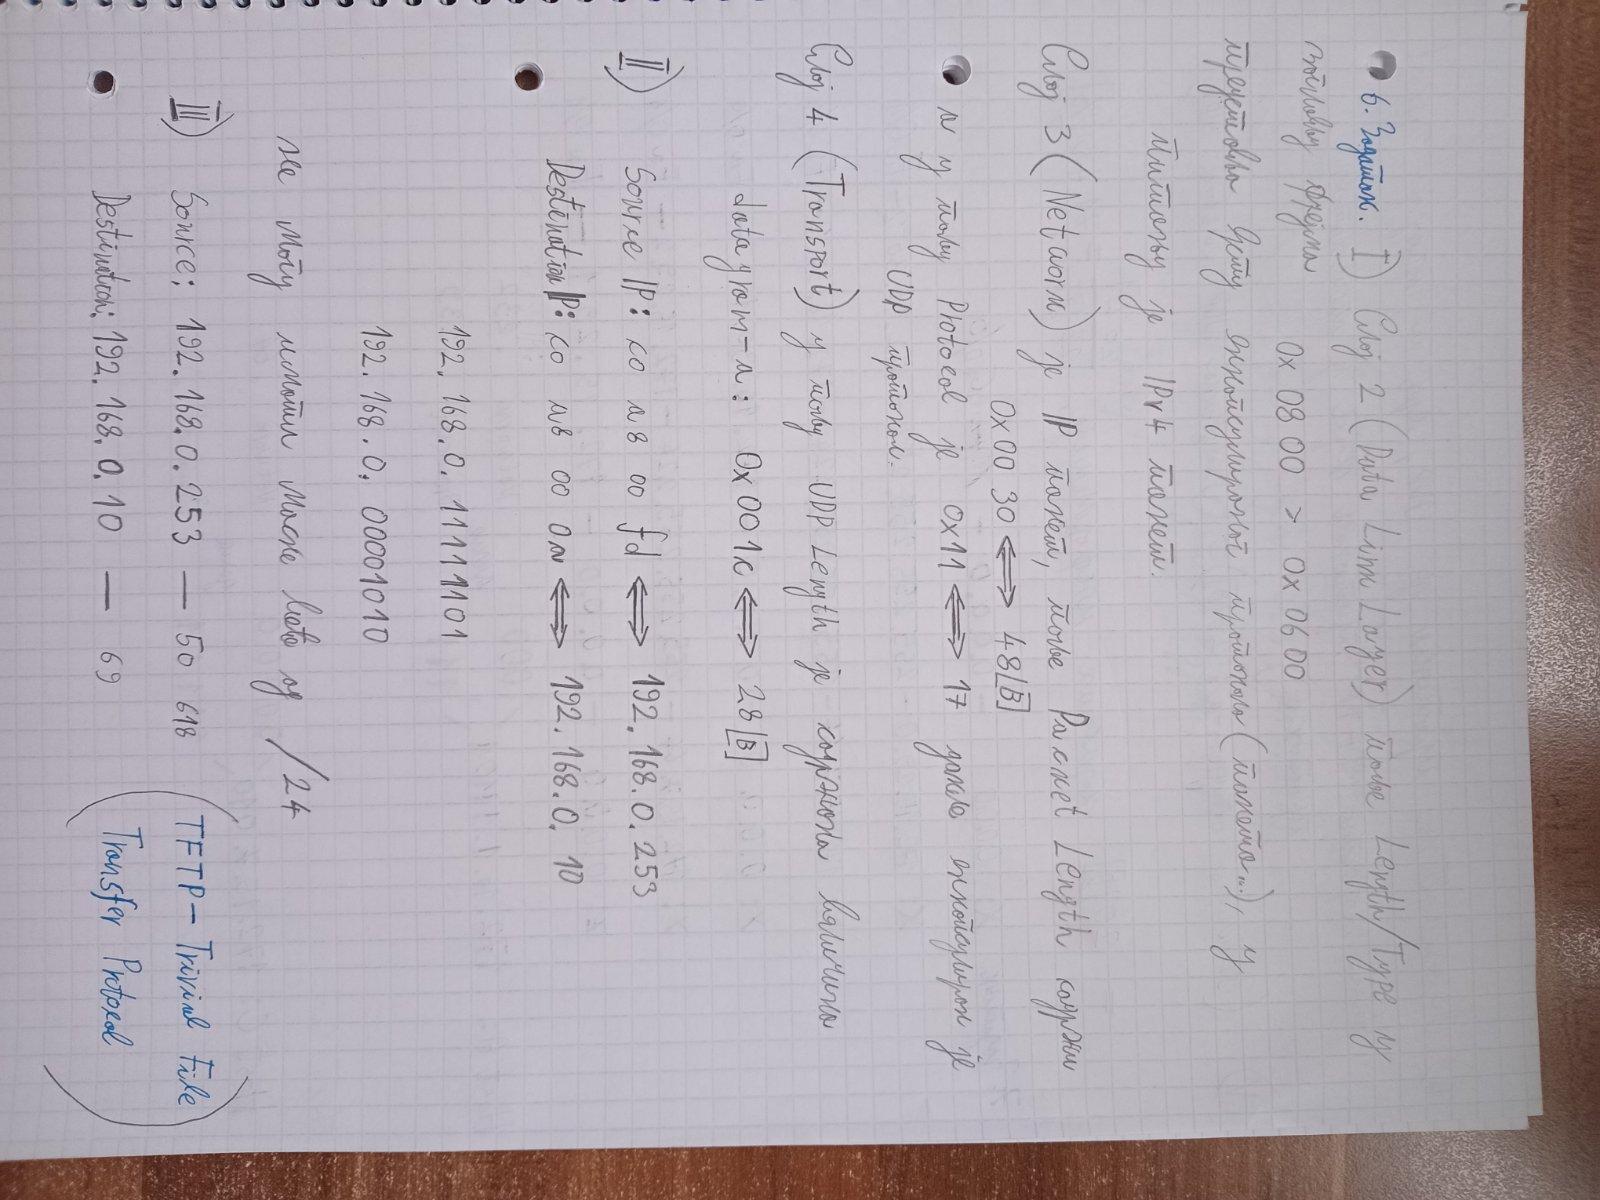 6. Задатак. I) Слој 2 (Data Link Layer) поље Length/Type у
заглављу фрејма
0x 08 00 > 0x 06 00
представља врсту енкапсулираног протокола (пакета...), у
питању је IPv4 пакет.
Слој 3 (Network) је IP пакет, поље Packet Length садржи
0x00 30 ⟺ 48[B]
а у пољу Protocol је 0x11 ⟺ 17 дакле енкапсулиран је
UDP протокол.
Слој 4 (Transport) у пољу UDP Length је садржана величина
datagram-а: 0x 00 1c ⟺ 28[B]
II) Source IP: c0 a8 00 fd ⟺ 192.168.0.253
Destination IP: c0 a8 00 0a ⟺ 192.168.0.10
192.168.0.11111101
192.168.0.00001010
не могу имати маске веће од /24
III) Source: 192.168.0.253 — 50 618 (TFTP – Trivial File
Destination: 192.168.0.10 — 69 Transfer Protocol)